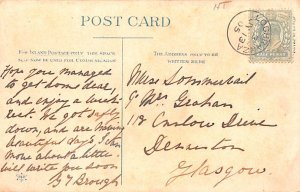 POST CARD
For Inland Postage only, this Space may
now be used for Communication.
The Address only to be
written here.
Hope you managed
to get home dear,
and enjoy a week
rest. We got safely
down, and are having
beautiful days, I can
more about a little
will write you soon
G. J. Brough
Miss
C/o Mrs Graham
118 Onslow Drive
Dennistoun
Glasgow